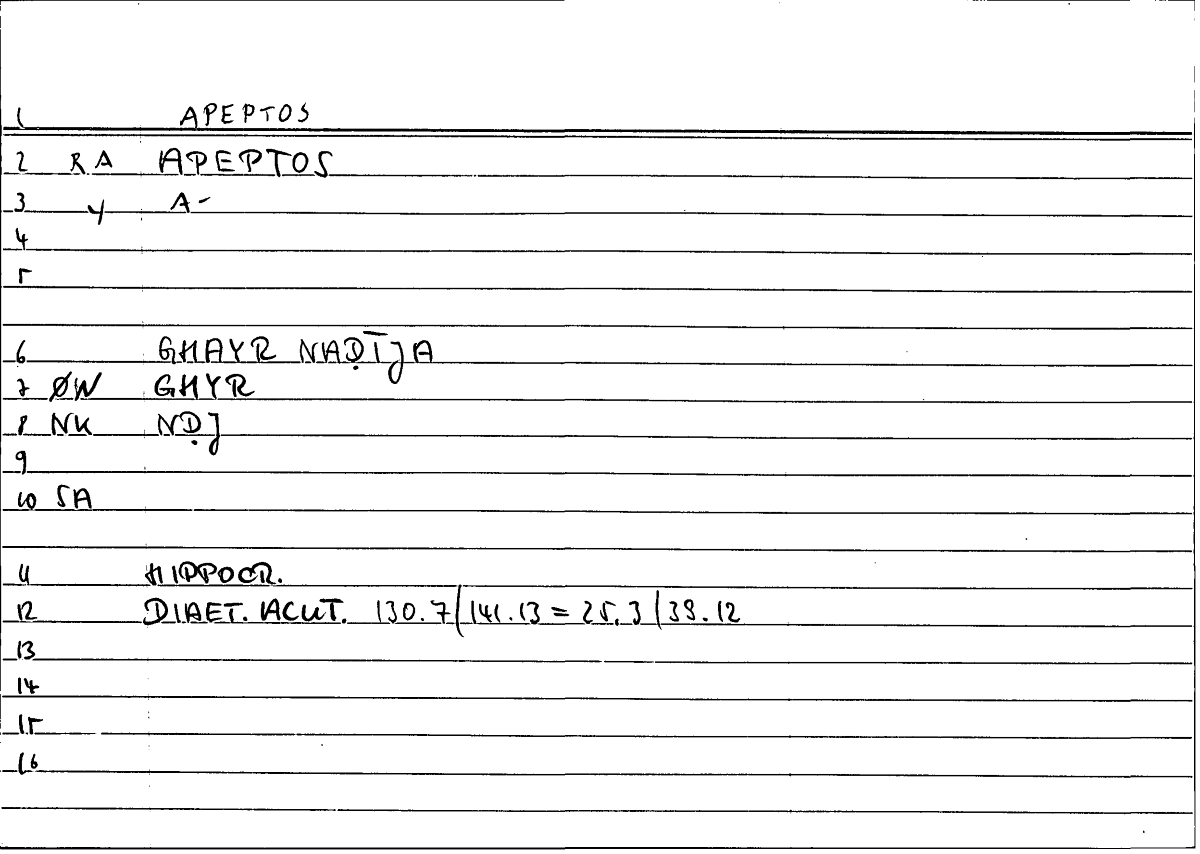 1 APEPTOS
2 RA APEPTOS
3 Y A-
4
5
6 GHAYR NAḌĪJA
7 ØW GHYR
8 NK NḌJ
9
10 SA
11 HIPPOCR.
12 DIAET. ACUT. 130.7/141.13 = 25.3/39.12
13
14
15
16